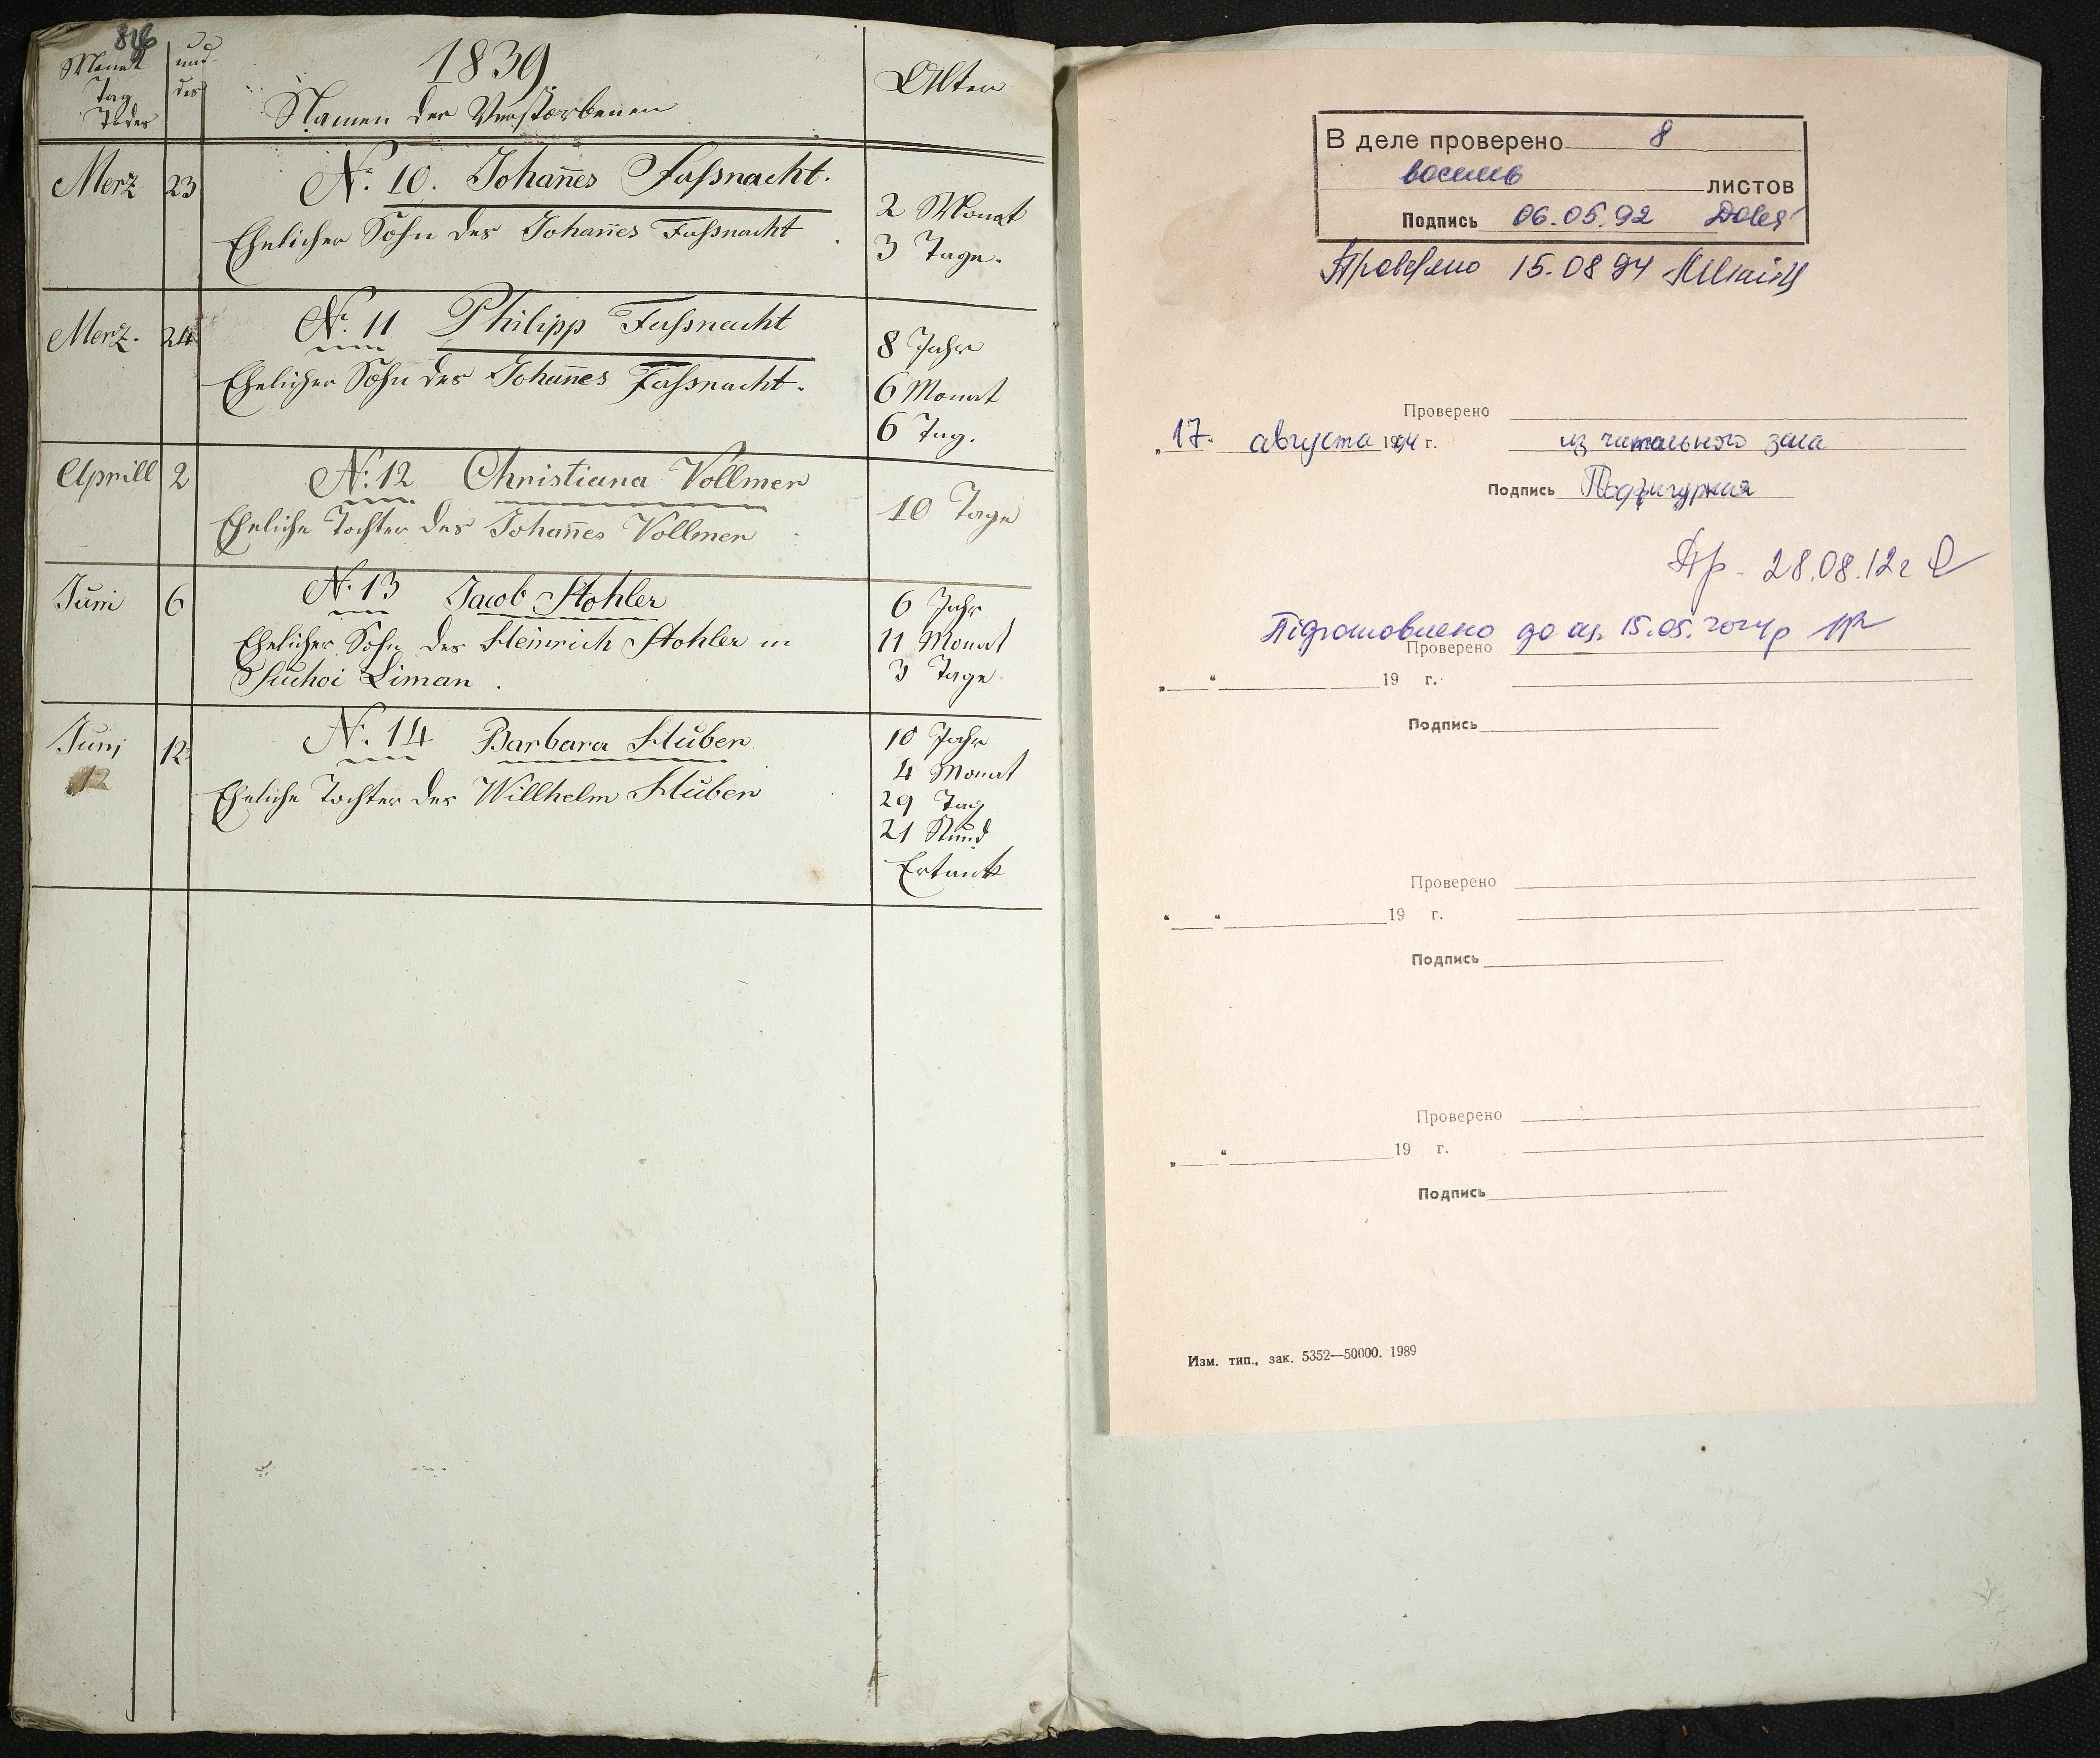 Monat und
Tag des
Todes
1839
Namen der Verstorbenen
Alter
Merz 23
N. 10. Johan̄es Faſsnacht.
Ehelicher Sohn des Johan̄es Faſsnacht
2 Monat
3 Tage.
Merz. 24
N. 11 Philipp Faſsnacht
Ehelicher Sohn des Johan̄es Faſsnacht.
8 Jahr
6 Monat
6 Tag.
Aprill 2
N. 12 Christiana Vollmer
Eheliche Tochter des Johan̄es Vollmer
10 Tage
Juni 6
N. 13 Jacob Stohler
Ehelicher Sohn des Heinrich Stohler in
Suchoi Liman.
6 Jahr
11 Monat
3 Tage
Juni 12
12
N. 14 Barbara Huber
Eheliche Tochter des Willhelm Huber
10 Jahr
4 Monat
29 Tag
21 Stund
Ertank
В деле проверено 8
восемь листов
Подпись 06.05.92
Проверено 15.08 94
Проверено
„17“ августа 1994 г. из читального зала
Подпись
Пр - 28.08.12г
Підготовлено до 15.05.2024р
Проверено
„ “ 19 г.
Подпись
Проверено
“ “ 19 г.
Подпись
Проверено
„ “ 19 г.
Подпись
Изм. тип., зак. 5352—50000. 1989